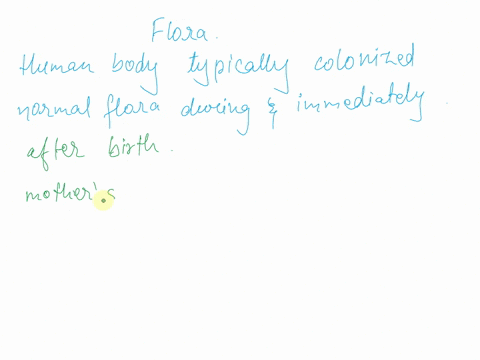 Flora.
Human body typically colonized
normal flora during & immediately.
after birth.
mother's